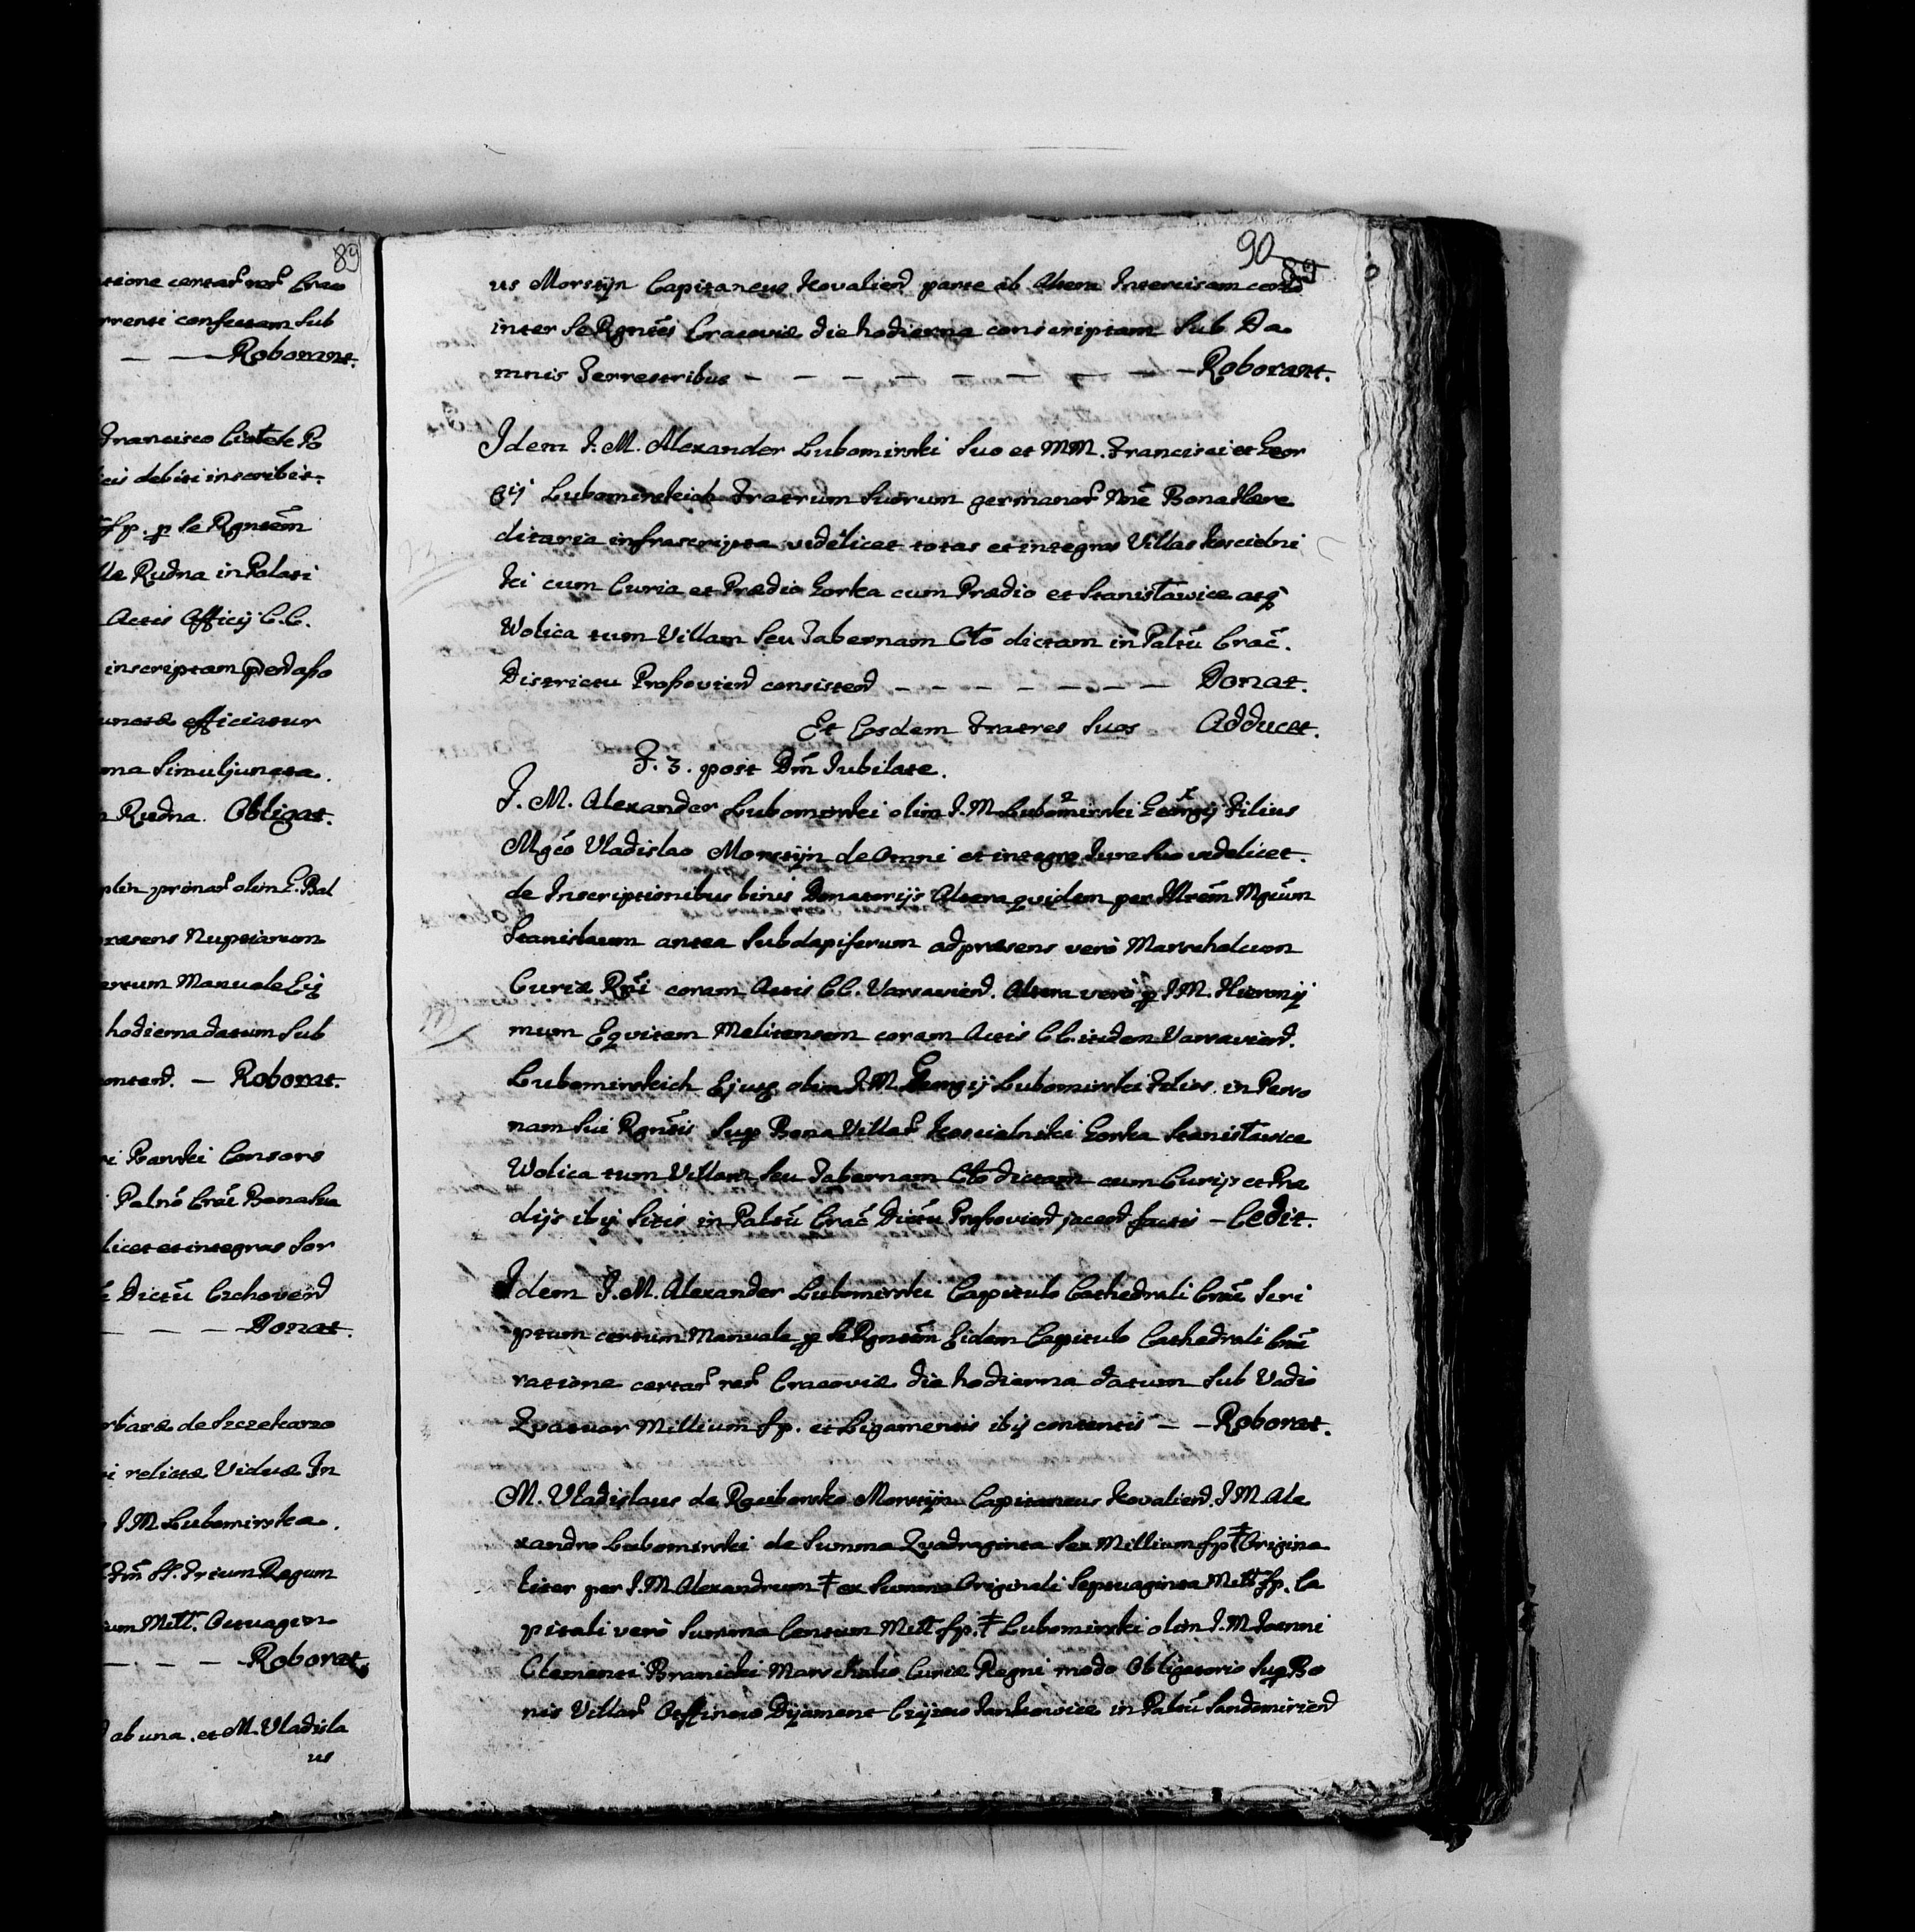 89
tione certar̃ rer̃ Crac
rrenti confectam Sub
— — Roborant.
Francisco Ciołek Po
cis debiti inscribit.
fp. p Se Rgntem
lle Rudna in Palati
Actis Officij C.C.
inscriptam
unctæ efficiatur
ma Simul juncta.
Rudna. Obligat.
præsens Nuptiarum
ertum Manuale Ejq
hodierna datum Sub
— Roborat.
i Barski Consors
licet et integras Sor
Dictũ Czchovien̄
— — — Donat.
rbaræ de Szczekarzo
i relictæ Viduæ In
I M Lubomirska.
Dm̃ SS. Trium Regum
um Mill. Octuagin
— — — Roborat.
ab una. et M. Vladisla
us
90
89
us Morstÿn Capitaneus Kovalien̄ parte ab Altera Intercisam certã
inter Se Rgntes Cracoviæ die hodierna conscriptam Sub Da
mnis Terrestribus — — — — — — — — Roborant.
Idem I. M. Alexander Lubomirski Suo et MM. Francisci et Geor
gij Lubomirskich Fratrum Suorum germanor̃ Nne Bona Hære
ditaria infrascripta videlicet totas et integras Villas Koscielni
ki cum Curia et Prædio Gorka cum Prædio et Stanisławice atq̃
Wolica tum Villam Seu Tabernam Cło dictam in Paltũ Crac̃.
Districtu Proßovien̄ consisten̄ — — — — — — Donat.
Et Eosdem Fratres Suos Adducet.
F. 3. post Dm̃ Iubilate.
I. M. Alexander Lubomirski olim I. M. Lubomirski Georgij Filius
Mgco Vladislao Morstÿn de Omni et integro Iure Suo videlicet.
de Inscriptionibus binis Donatorijs Altera quidem per Illrem̃ Mgcum̃
Stanislaum antea Subdapiferum ad præsens verò Marschalcum
Curiæ Rgni coram Actis CC. Varsavien̄. Altera verò p I. M. Hieronÿ
mum Eqvitem Melitensem coram Actis CC. itidem Varsavien̄.
Lubomirskich Ejusq olim I. M. Georgij Lubomirski Filios in Perso
nam Sui Rgntis Sup Bona Villar̃ Koscielniki Gorka Stanisławice
Wolica tum Villam Seu Tabernam Cło dictam cum Curijs et Præ
dijs ibij Sitis in Paltũ Crac̃ Dictũ Proßovien̄ jacen̄ factis — Cedit.
Idem I. M. Alexander Lubomirski Capitulo Cathedrali Crac̃ Scri
ptum certum Manuale p Se Rgntem Eidem Capitulo Cathedrali Crac̃
ratione certar̃ rer̃ Cracoviæ die hodierna datum Sub Vadio
Qvatuor Millium fp. et Ligamentis ibij contentis — — Roborat.
M. Vladislaus de Raciborsko Morstÿn Capitaneus Kovalien̄. I M Ale
xandro Lubomirski de Summa Qvadraginta Sex Millium fp ‡ Origina
liter per I. M. Alexandrum ‡ ex Summa Originali Septuaginta Mill fp. Ca
pitali verò Summa Centum Mill. fp. ‡ Lubomirski olim I. M. Joanni
Clementi Branicki Marschalco Curiæ Regni modo Obligatorio Sup Bo
nis Villar̃ Dÿament Czÿzow Jankowice in Paltũ Sandomirien̄